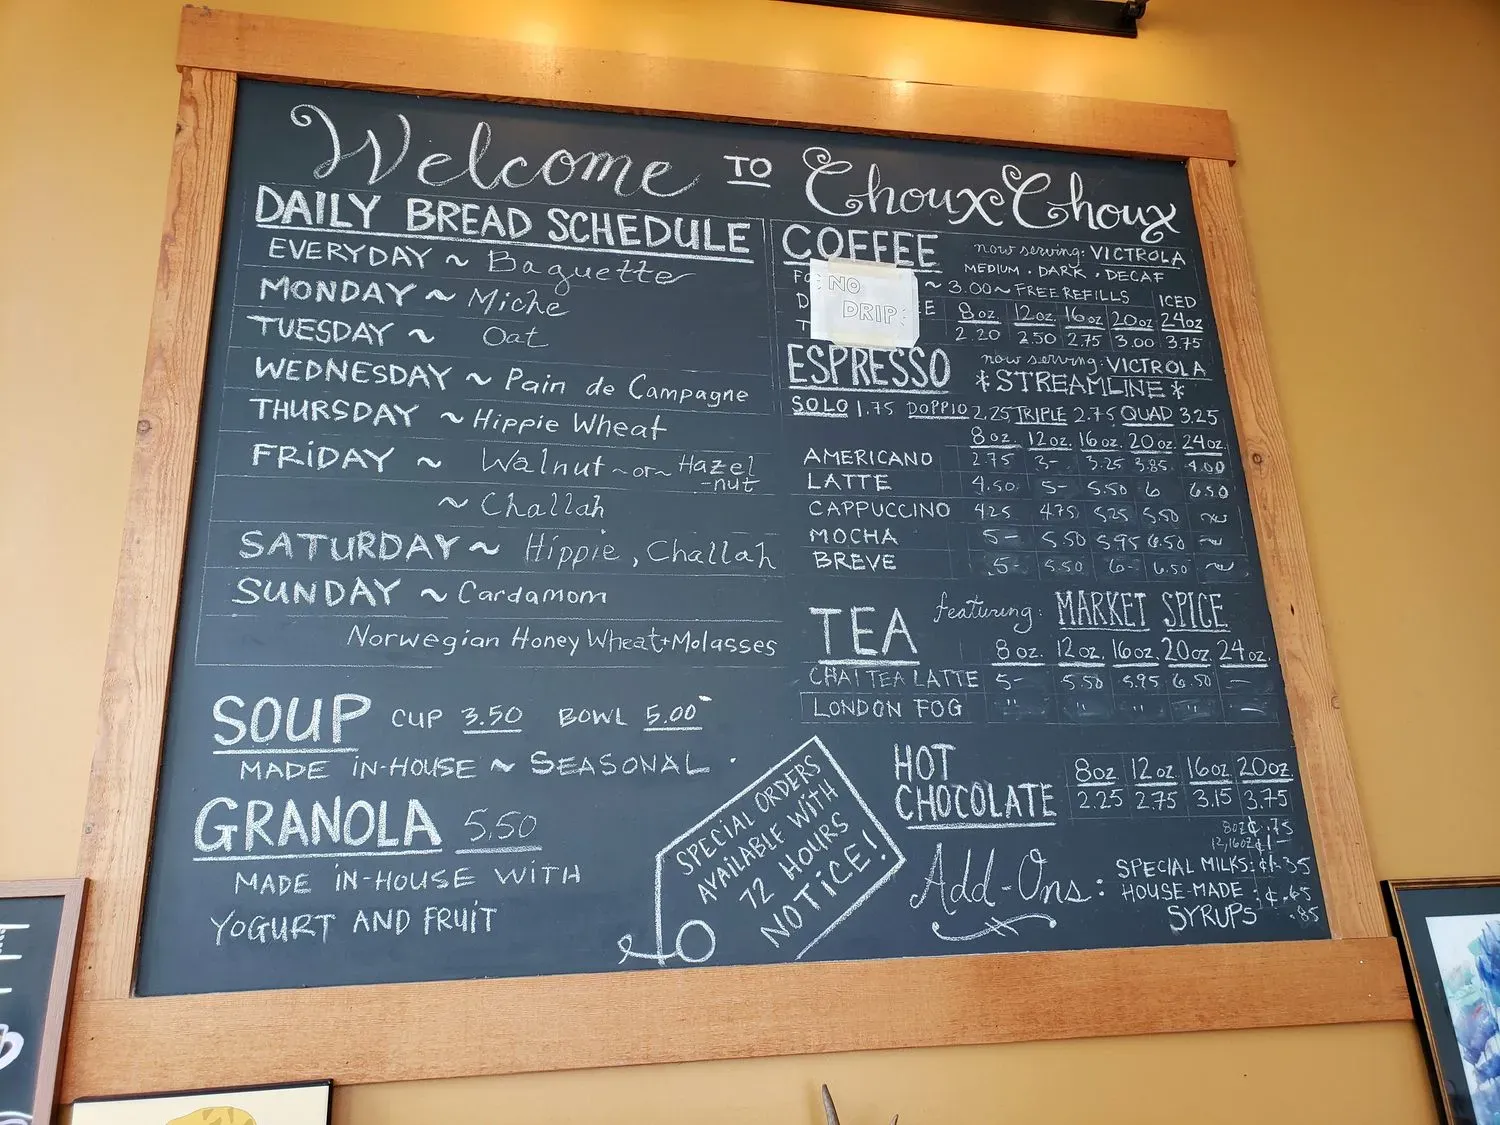 Welcome TO Choux Choux
DAILY BREAD SCHEDULE
EVERYDAY ~ Baguette
MONDAY ~ Miche
TUESDAY ~ Oat
WEDNESDAY ~ Pain de Campagne
THURSDAY ~ Hippie Wheat
FRIDAY ~ Walnut ~or~ Hazel
-nut
~ Challah
SATURDAY ~ Hippie, Challah
SUNDAY ~ Cardamom
Norwegian Honey Wheat+Molasses
SOUP CUP 3.50 BOWL 5.00
MADE IN-HOUSE ~ SEASONAL
GRANOLA 5.50
MADE IN-HOUSE WITH
YOGURT AND FRUIT
SPECIAL ORDERS
AVAILABLE WITH
72 HOURS
NOTICE!
COFFEE now serving: VICTROLA
MEDIUM · DARK · DECAF
~ 3.00 ~ FREE REFILLS ICED
NO
DRIP
8oz. 12oz. 16oz 20oz 24oz
2.20 2.50 2.75 3.00 3.75
ESPRESSO now serving: VICTROLA
*STREAMLINE*
SOLO 1.75 DOPPIO 2.25 TRIPLE 2.75 QUAD 3.25
8oz. 12oz. 16oz. 20oz. 24oz.
AMERICANO 2.75 3- 3.25 3.85 4.00
LATTE 4.50 5- 5.50 6 6.50
CAPPUCCINO 4.25 4.75 5.25 5.50 ~
MOCHA 5- 5.50 5.95 6.50 ~
BREVE 5- 5.50 6- 6.50 ~
TEA featuring: MARKET SPICE
8oz. 12oz. 16oz. 20oz. 24oz.
CHAI TEA LATTE 5- 5.50 5.95 6.50 —
LONDON FOG " " " " —
HOT
CHOCOLATE
8oz 12oz. 16oz 20oz.
2.25 2.75 3.15 3.75
Add-Ons:
8oz ¢.75
SPECIAL MILKS:
HOUSE-MADE : ¢.65
SYRUPS .85